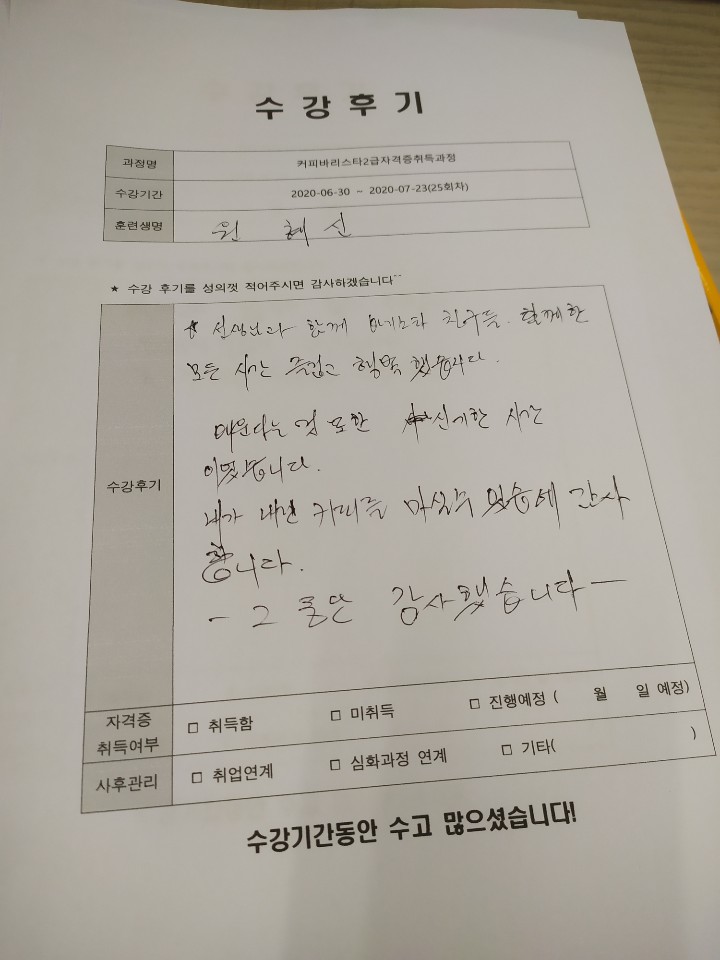 수 강 후 기
과정명 커피바리스타2급자격증취득과정
수강기간 2020-06-30 ~ 2020-07-23(25회차)
훈련생명 원 혜 신
★ 수강 후기를 성의껏 적어주시면 감사하겠습니다^^
수강후기
선생님과 함께 친구들. 함께한
모든 시간 즐겁고 행복 했습니다.
배운다는 것 또한 신기한 시간
이였습니다.
내가 내린 커피를 마실수 있음에 감사
합니다.
- 그 동안 감사했습니다 -
자격증
취득여부 □ 취득함 □ 미취득 □ 진행예정 ( 월 일 예정)
사후관리 □ 취업연계 □ 심화과정 연계 □ 기타( )
수강기간동안 수고 많으셨습니다!